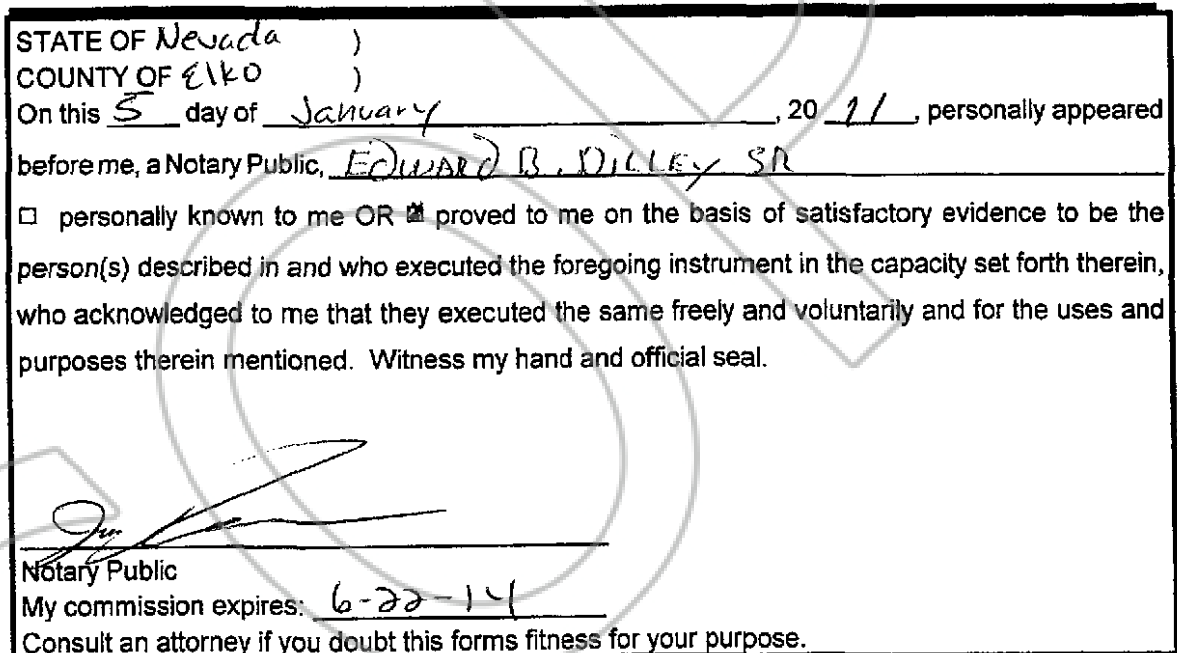 STATE OF Nevada )
COUNTY OF Elko )
On this 5 day of January, 20 11, personally appeared
before me, a Notary Public, EDWARD B. DILLEY SR
☐ personally known to me OR ☒ proved to me on the basis of satisfactory evidence to be the
person(s) described in and who executed the foregoing instrument in the capacity set forth therein,
who acknowledged to me that they executed the same freely and voluntarily and for the uses and
purposes therein mentioned. Witness my hand and official seal.
Notary Public
My commission expires: 6-22-14
Consult an attorney if you doubt this forms fitness for your purpose.